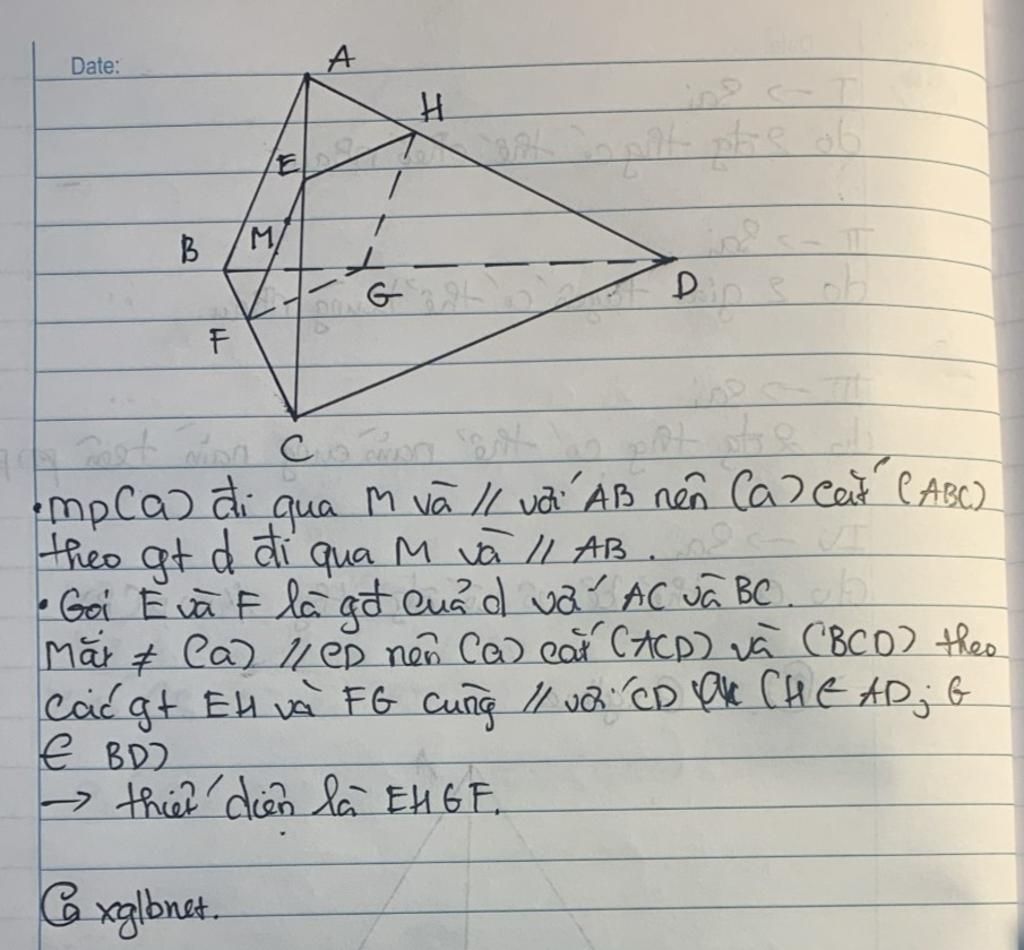 Date:
A
H
E
B
M
G
D
F
C
• mp(a) đi qua M và // với AB nên (a) cắt (ABC)
theo gt d đi qua M và // AB.
• Gọi E và F là gđ của d với AC và BC.
Mặt ≠ (a) // CD nên (a) cắt (ACD) và (BCD) theo
các gt EH và FG cùng // với CD (H ∈ AD; G
∈ BD)
→ thiết diện là EHGF.
xg/bnet.